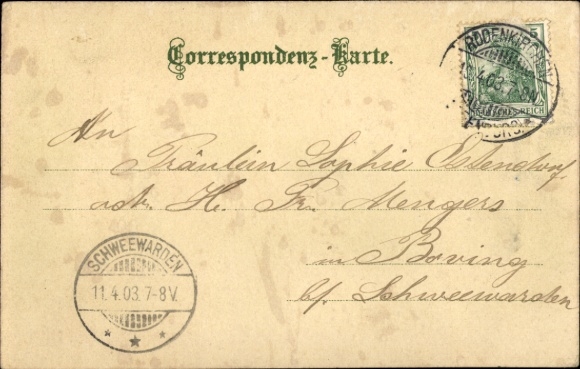 Correspondenz-Karte.
RODENKIRCHEN
4.03
REICH
An
Fräulein Sophie Ostendorf
adr. H. Fr. Mengers
in Boving
bf. Schweewarden
SCHWEEWARDEN
11.4.03. 7-8V.